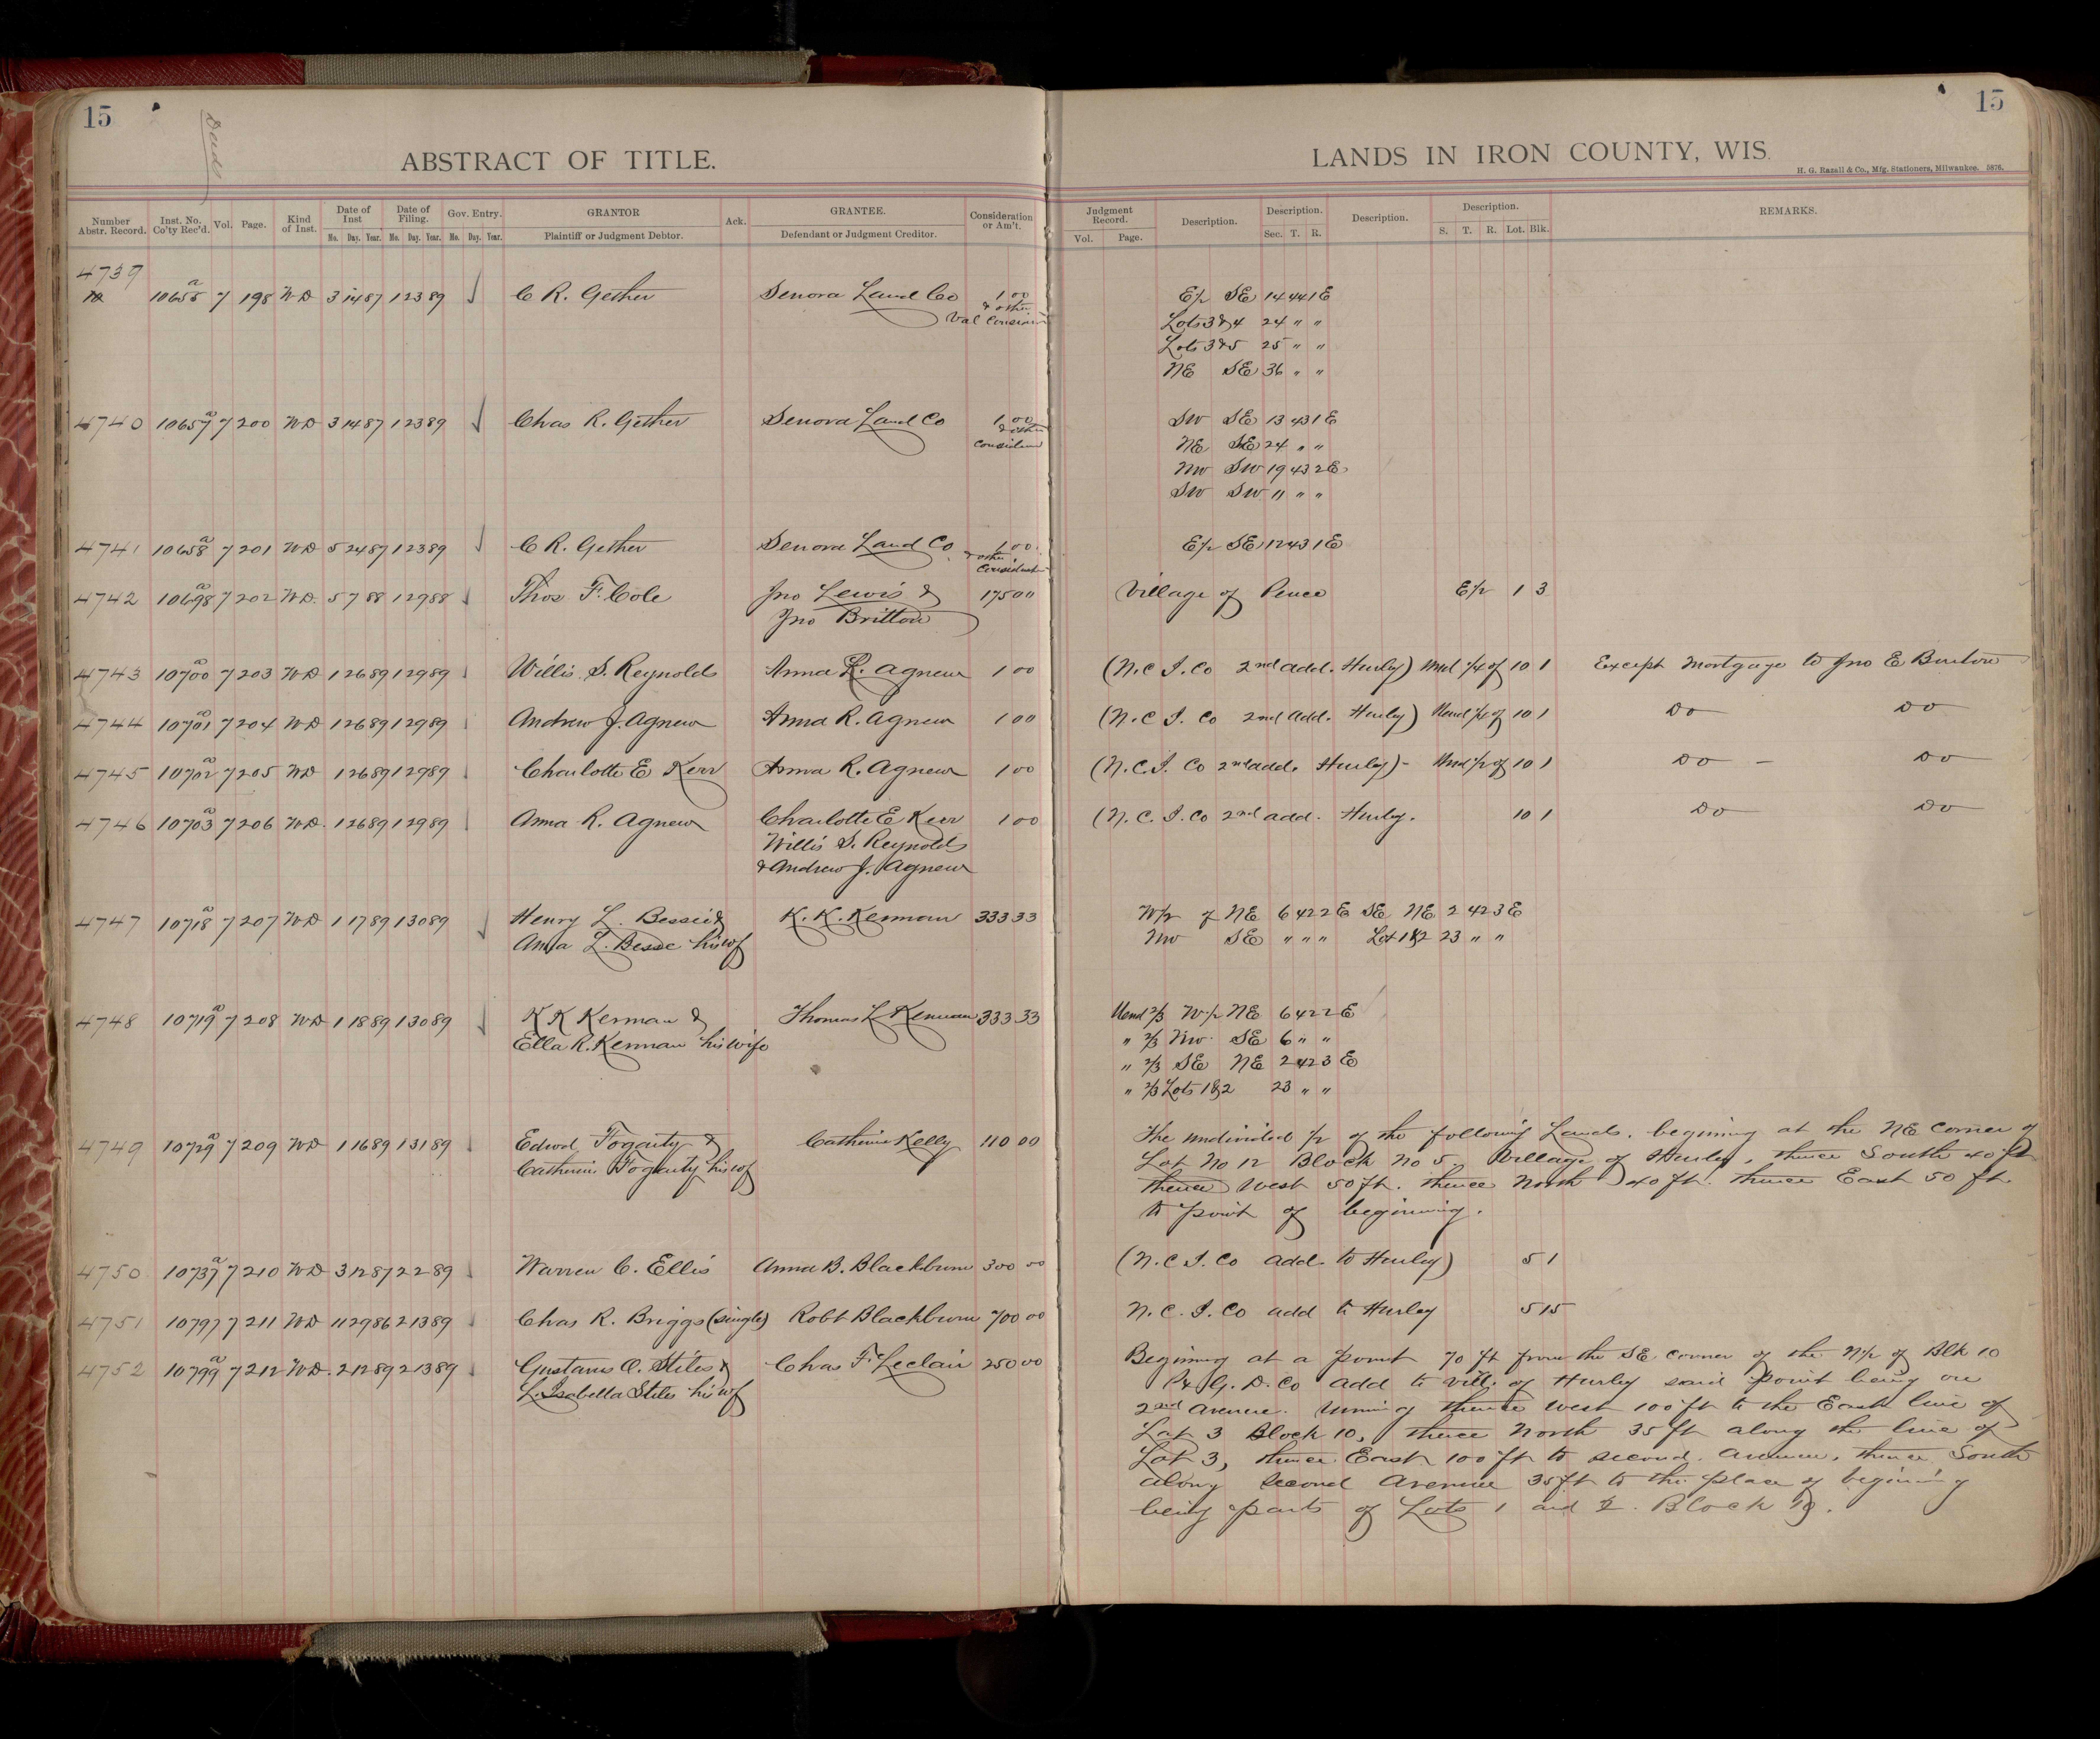 15
Deeds
ABSTRACT OF TITLE.
Number Abstr. Record. Inst. No. Co'ty Rec'd. Vol. Page. Kind of Inst. Date of Inst Mo. Day. Year. Date of Filing. Mo. Day. Year. Gov. Entry. Mo. Day. Year. GRANTOR Plaintiff or Judgment Debtor. Ack. GRANTEE. Defendant or Judgment Creditor. Consideration or Am't.
4739
10655 a 7 198 WD 3 14 87 1 23 89 ✓ C R. Gether Senora Land Co 1 00
& other
Val Consid
4740 10657 a 7 200 WD 3 14 87 1 23 89 ✓ Chas R. Gether Senora Land Co 1 00
& other
4741 10658 a 7 201 WD 5 24 87 1 23 89 ✓ C R. Gether Senora Land Co 1 00
& other
4742 10698 a 7 202 WD. 5 7 88 1 29 88 Thos F. Cole Jno Lewis & 175 00
Jno Britton
4743 10700 a 7 203 WD 1 26 89 1 29 89 Willis S. Reynolds Anna R. Agnew 1 00
4744 10701 a 7 204 WD 1 26 89 1 29 89 Andrew J. Agnew Anna R. Agnew 1 00
4745 10702 a 7 205 WD 1 26 89 1 29 89 Charlotte E Kerr Anna R. Agnew 1 00
4746 10703 a 7 206 WD. 1 26 89 1 29 89 Anna R. Agnew Charlotte E Kerr 1 00
Willis S. Reynolds
& Andrew J. Agnew
4747 10718 a 7 207 WD 1 17 89 1 30 89 ✓ Henry L. Besse & K. K. Kennan 333 33
Anna L. Besse his wf
4748 10719 a 7 208 WD 1 18 89 1 30 89 ✓ K K Kennan & Thomas L Kennan 333 33
Ella R. Kennan his wife
4749 10729 a 7 209 WD 1 16 89 1 31 89 Edwd Fogarty & Catherine Kelly 110 00
Catherine Fogarty his wf
4750 10737 a 7 210 WD 3 12 87 2 2 89 Warren C. Ellis Anna B. Blackburn 300 00
4751 10797 7 211 WD 11 29 86 2 13 89 Chas R. Briggs (single) Robt Blackburn 700 00
4752 10799 a 7 212 WD. 2 12 89 2 13 89 Gustavus O. Stiles & Chas F. Leclair 250 00
L. Isabella Stiles his wf
15
LANDS IN IRON COUNTY, WIS.
H. G. Razall & Co., Mfg. Stationers, Milwaukee. 5876.
Judgment Record. Vol. Page. Description. Description. Sec. T. R. Description. Description. S. T. R. Lot. Blk. REMARKS.
E/2 SE 14 44 1 E
Lots 3 & 4 24 " "
Lots 3 & 5 25 " "
NE SE 36 " "
SW SE 13 43 1 E
NE SE 24 " "
NW SW 19 43 2 E.
SW SW " " "
E/2 SE 12 43 1 E
Village of Pence E/2 1 3
(N.C.I.Co 2nd add. Hurley) Und 1/4 of 10 1 Except Mortgage to Jno E Burton
(N.C.I. Co 2nd add. Hurley) Und 1/4 of 10 1 Do Do
(N.C.I. Co 2nd add. Hurley) - Und 1/2 of 10 1 Do - Do
(N.C.I.Co 2nd add. Hurley. 10 1 Do Do
W/2 of NE 6 42 2 E SE NE 2 42 3 E
NW SE " " " Lot 1 & 2 23 " "
Und 2/3 W/2 NE 6 42 2 E
" 2/3 NW. SE 6 " "
" 2/3 SE NE 2 42 3 E
" 2/3 Lots 1 & 2 23 " "
The undivided 1/2 of the following Lands. begining at the NE corner of
Lot No 12 Block No 5. Village of Hurley, thence South 40 ft
thence West 50 ft. thence North 40 ft. thence East 50 ft.
to point of beginning.
(N.C.I.Co add. to Hurley) 5 1
N.C.I.Co add to Hurley 5 15
Begining at a point 70 ft from the SE corner of the N/2 of Blk 10
P & G. D. Co add to vill. of Hurley said point being on
2nd Avenue. running thence West 100 ft to the East line of
Lot 3 Block 10, thence North 35 ft along the line of
Lot 3, thence East 100 ft to second Avenue, thence South
along second Avenue 35 ft to the place of begining
being parts of Lots 1 and 2. Block 10.